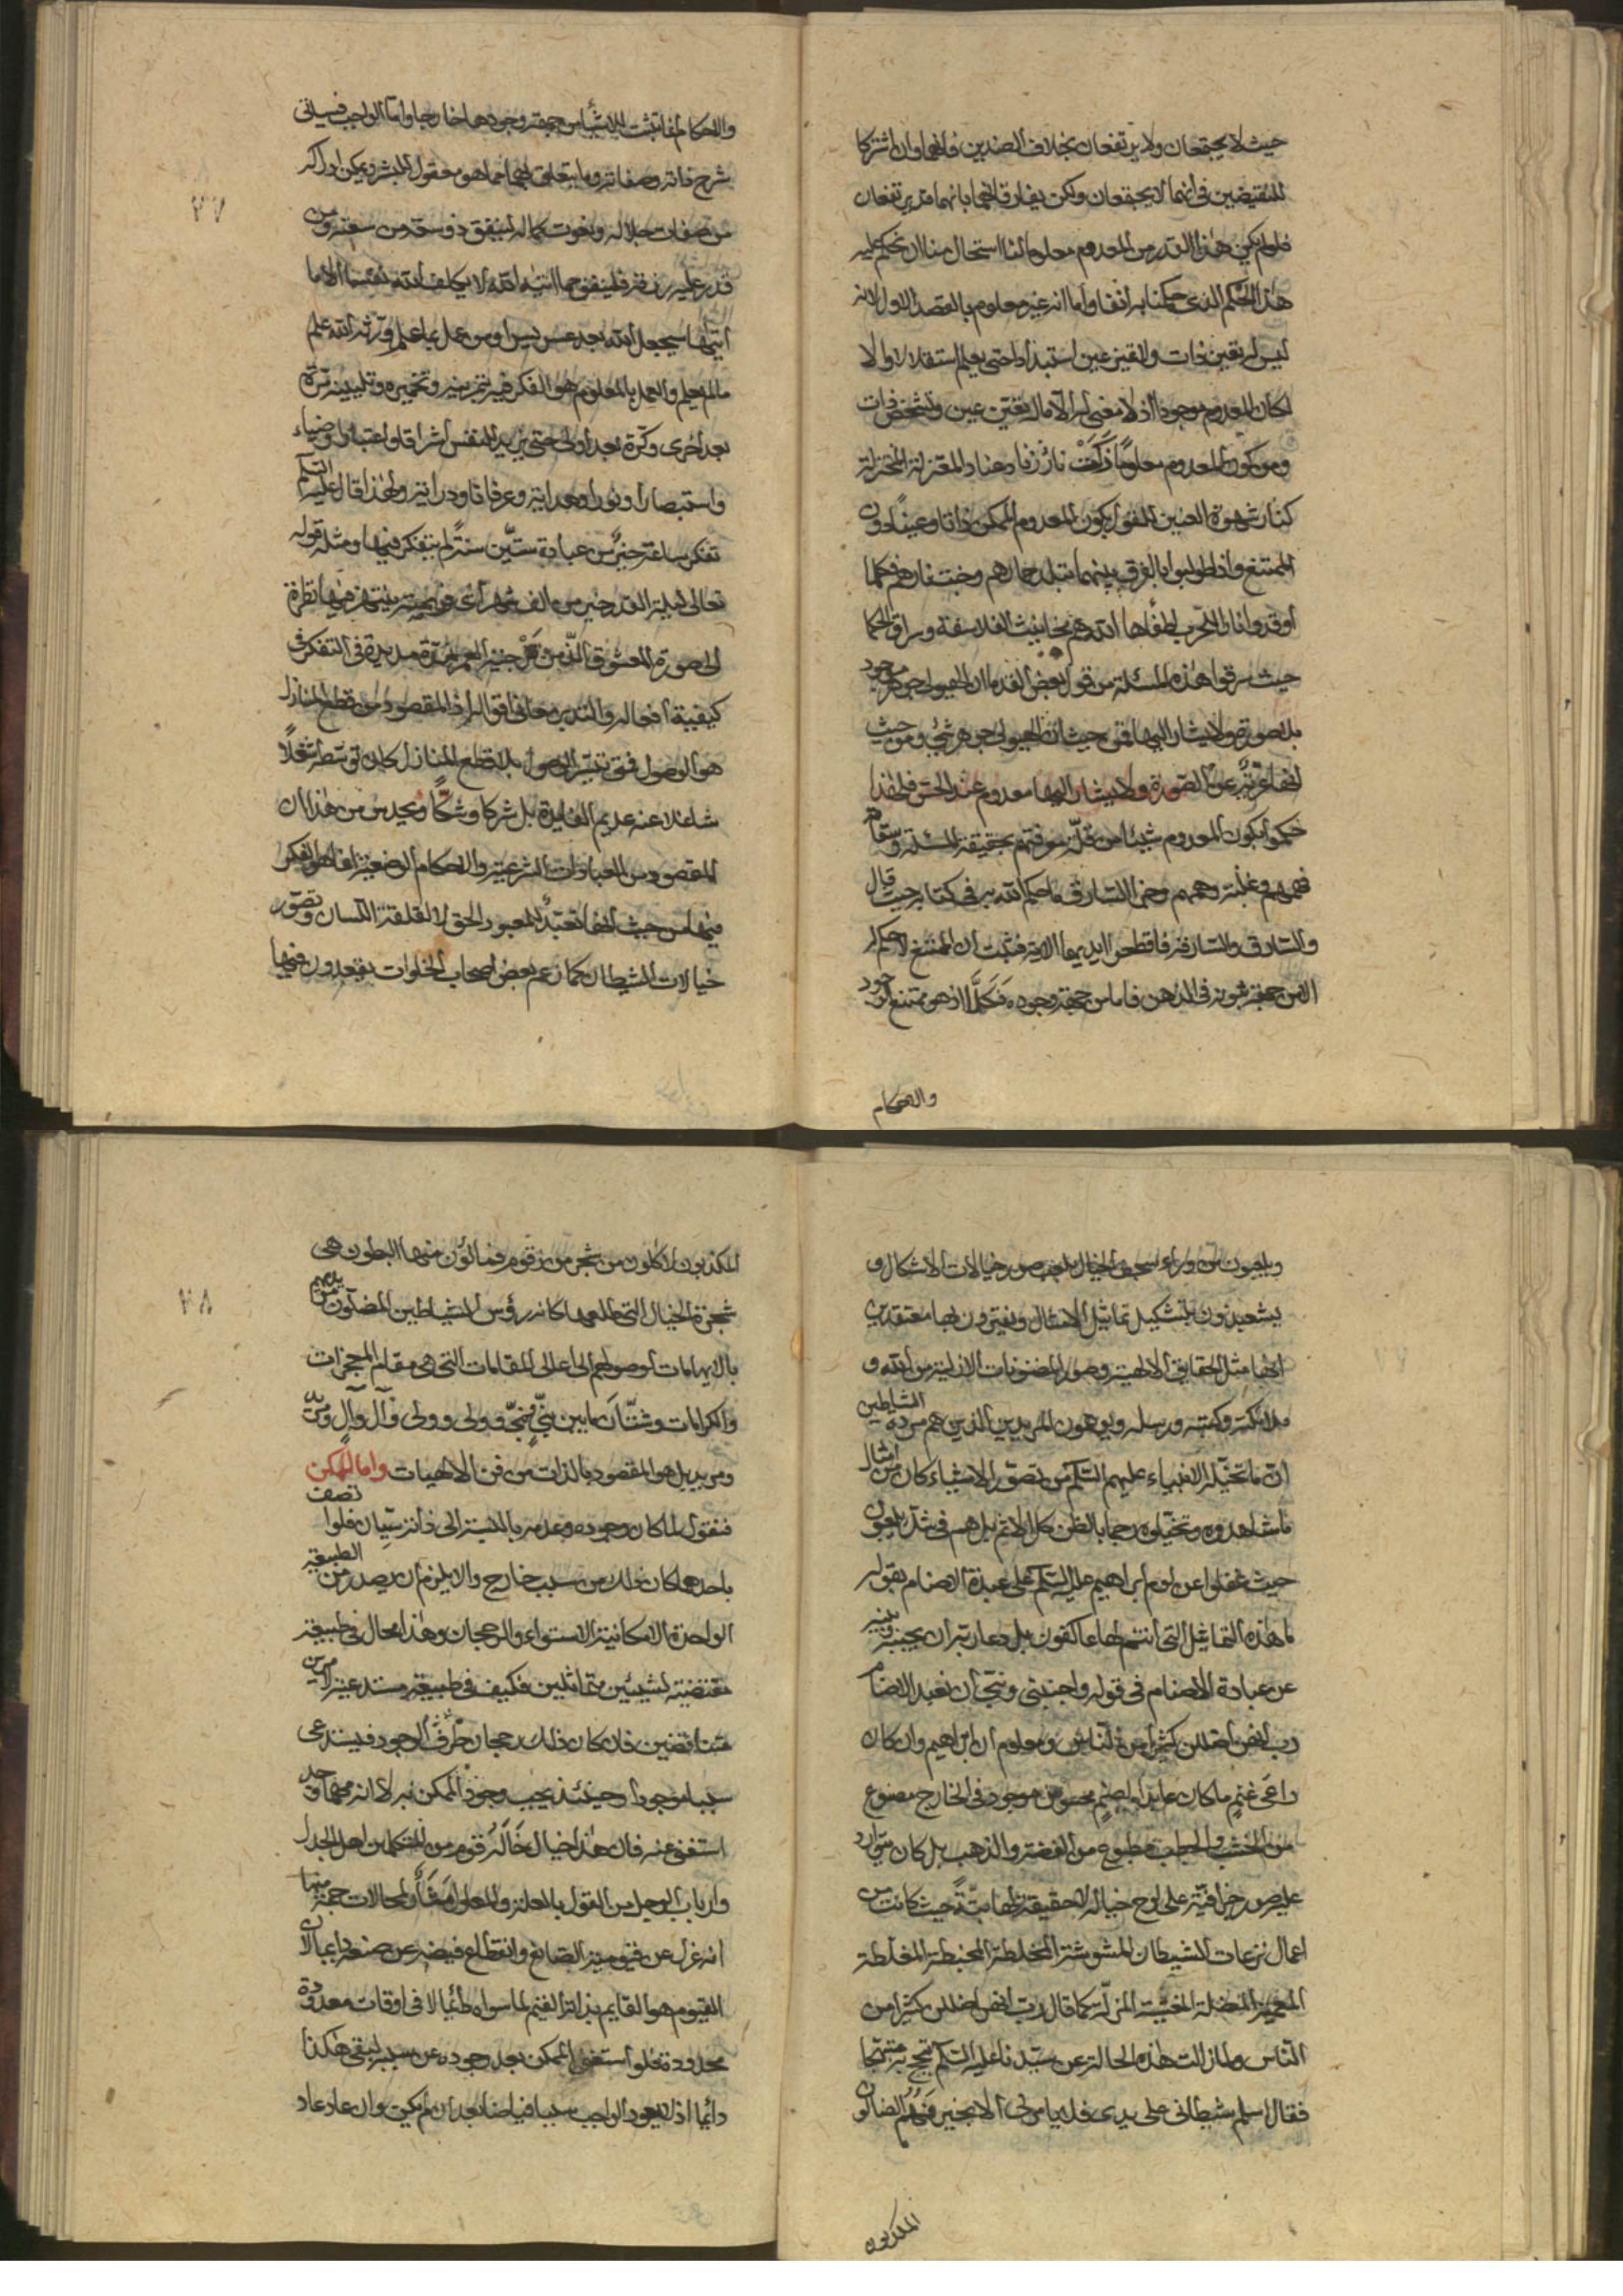 حيث لا يجتمعان ولا يرتفعان بخلاف الضدين فانهما وان اشتركا
للنقيضين في انهما لا يجتمعان ولكن يفارقانهما بانهما قد يرتفعان
فلو لم يكن هذا القدر من المعدوم معلوما لنا استحال منا ان نحكم عليه
هذا الحكم الذي حكمنا به انفا واما انه غير معلوم بالقصد الاول لانه
ليس له تعين ذات وتقين عين استبدادا حتى يعلم استقلالا والا
لكان المعدوم موجودا اذ لا معنى له الا ماله تعين عين وتشخص ذات
ومن كون المعدوم معلوما ذكت نائرة زناد عناد المعتزلة المختزلة
كنار شهوة العنين للقول بكون المعدوم الممكن ذاتا وعينا دون
الممتنع واذا طولبوا بالفرق بينهما تبلد حمارهم فكلما
اوقدوا نارا للحرب اطفأها الله هم مخانيث الفلاسفة وسراق الحكما
حيث سرقوا هذه المسئلة من قول بعض القدما ان الهيولى جوهر موجود
بلا صورة ولا يشار اليها فمن حيث ان الهيولى جوهر شيء ومن حيث
انها عرية عن الصورة ولا يشار اليها معدوم عند الحس فلهذا
حكموا بكون المعدوم شيئا من قلة سوقهم بحقيقة المسئلة وسقام
فهمهم وغلبة وهمهم وحق السارق ما حكم الله به في كتابه حيث قال
والسارق والسارقة فاقطعوا ايديهما الاية فثبت ان الممتنع لا حكم له
الا من جهة ثبوته في الذهن فاما من جهة وجوده فكلا اذ هو ممتنع الوجود
والاحكام
٢٧
والاحكام انما تثبت للاشياء من جهة وجودها خارجا واما الواجب فسياتي
شرح ذاته وصفاته وما يتعلق بهما مما هو معقول للبشر ويمكن ادراكه
من صفات جلاله ونعوت كماله لينفق ذو سعة من سعته ومن
قدر عليه رزقه فلينفق مما اتيه الله لا يكلف الله نفسا الا ما
اتيها سيجعل الله بعد عسر يسرا ومن عمل بما علم ورثه الله علم
ما لم يعلم والعمل بالمعلوم هو الفكر فيه بتمرينه وتخميره وتليينه مرة
بعد اخرى وكرة بعد اولى حتى يزيد للنفس اشراقا واعتبارا وضياء
واستبصارا ونورا وهداية وعرفانا ودراية ولهذا قال عليه السلم
تفكر ساعة خير من عبادة ستين سنة لم يتفكر فيها ومثله قوله
تعالى ليلة القدر خير من الف شهر اى فويحة ينتهز فيها نظرة
الى صورة المعشوق الذ من كل خير العمر لمدة مديدة في التفكر في
كيفية افعاله والتدبر معاني اقواله اذ المقصود من قطع المنازل
هو الوصول فمتى تيسر الوصول بلا قطع المنازل كان توسطه شغلا
شاغلا عنه عديم الفايدة بل شركا وشكا ويحدس من هذا ان
المقصود من العبادات الشرعية والاحكام الوضعية انما هو الفكر
فيها من حيث انها تعبد للمعبود الحق لا لقلقة اللسان وتصور
خيالات الشيطان كما زعم بعض اصحاب الخلوات يقعدون فيها
ويلعبون من وراء سجف الخيال بلعب صور خيالات الاشكال و
يشعبذون بتشكيل تماثيل الامثال ويفترون بها معتقدين
انها مثل الحقايق الالهية وصور المضنونات الازلية من الله و
ملائكته وكتبه ورسله ويوهمون المريدين الذين هم مردة الشياطين
ان ما تخيله الانبياء عليهم السلم من تصور الاشياء كان من امثال
ما شاهدوه وتخيلوه رجما بالظن كل الاثم بل هم في شك يلعبون
حيث غفلوا عن لوم ابراهيم عليه السلم على عبدة الاصنام بقوله
ما هذه التماثيل التي انتم لها عاكفون بل دعا ربه ان يجنبه وبنيه
عن عبادة الاصنام في قوله واجنبني وبني ان نعبد الاصنام
رب انهن اضللن كثيرا من الناس ومعلوم ان ابراهيم وان كان
داعى غنم ما كان عابدا لصنم محسوس موجود في الخارج مصنوع
من الخشب والحطب مطبوع من الفضة والذهب بل كان يتوارد
عليه صور خرافية على لوح خياله لا حقيقة لها بتة حيث كانت من
اعمال نزعات الشيطان المشوشة المخلطة المخبطة المغلطة
المحيرة المضلة المخيبة المزلة كما قال رب انهن اضللن كثيرا من
الناس ولما زالت هذه الحالة عن سيدنا عليه السلم تبجح به مبتهجا
فقال اسلم شيطاني على يدى فلا يامرني الا بخير فهم الضالون
المكذبون
٢٨
المكذبون لاكلون من شجر من زقوم فمالؤن منها البطون هي
شجرة الخيال التي طلعها كانه رؤس الشياطين المضلون مريديهم
بالايهامات لوصولهم الى اعالي المقامات التي هي مقام المعجزات
والكرامات وشتان ما بين نبي فنبي وولي وولي وآل وآل ومن
ومن يديل هو المقصود بالذات من فن الالهيات واما الممكن
فنقول لما كان وجوده وعدمه بالنسبة الى ذاته سيان فلو اتصف
باحدهما كان ذلك من سبب خارج والا يلزم ان يصدر من الطبيعة
الواحدة الامكانية الاستواء والرجحان وهذا محال في طبيعة
مقتضية لشيئين متماثلين فكيف في طبيعة مستدعية لامرين
متناقضين فان كان ذلك رجحان طرف الوجود فيستدعى
سببا موجودا وحينئذ يجب وجود الممكن به لا انه مهما وجد
استغنى عنه فان هذا خيال خاله قوم من المتكلمين اهل الجدل
وارباب الوحل من القول بالعلة والمعلول منشأ المحالات جمة منها
انه غزل عن قيومية الصانع وانقطاع فيضه عن صنعه دايما لان
القيوم هو القايم بذاته القيم لما سواه دائما لا في اوقات معدودة
محدودة فلو استغنى الممكن بعد وجوده عن سببه لبقي هكذا
دائما اذ لا يعود الواجب سببا فياضا بعد ان لم يكن وان عاد عاد